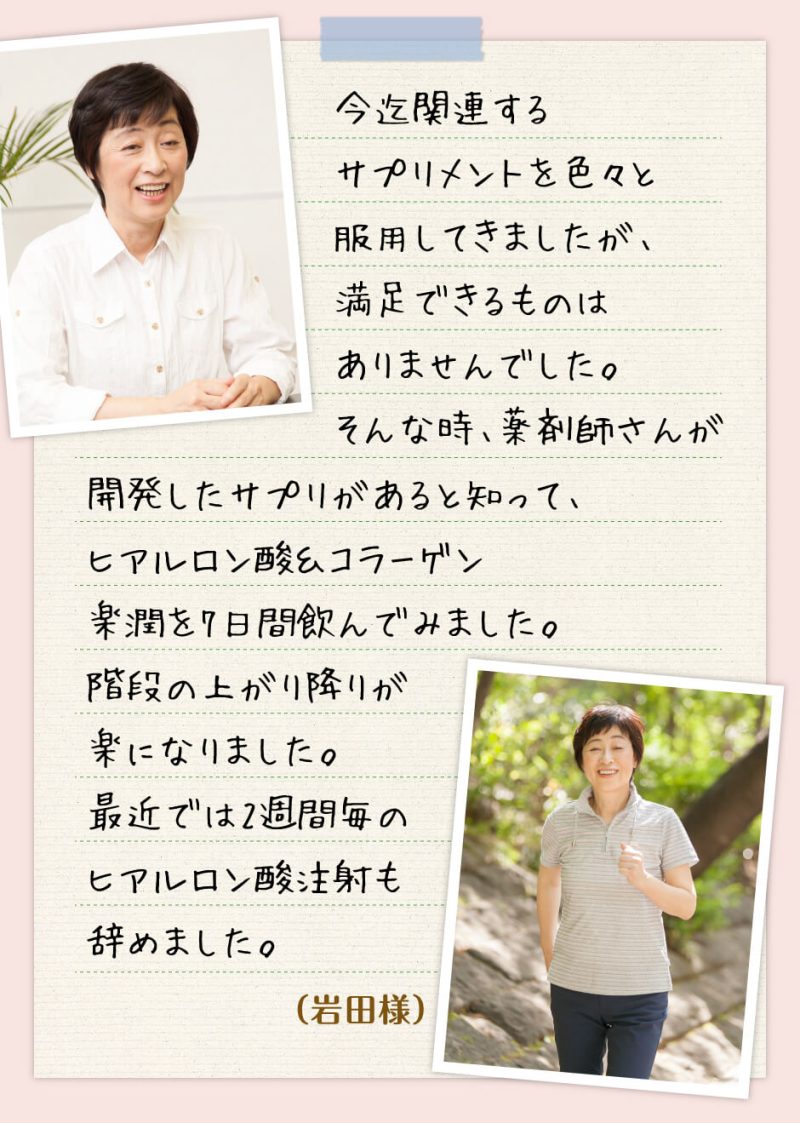 今迄関連する
サプリメントを色々と
服用してきましたが、
満足できるものは
ありませんでした。
そんな時、薬剤師さんが
開発したサプリがあると知って、
ヒアルロン酸&コラーゲン
楽潤を7日間飲んでみました。
階段の上がり降りが
楽になりました。
最近では2週間毎の
ヒアルロン酸注射も
辞めました。
(岩田様)